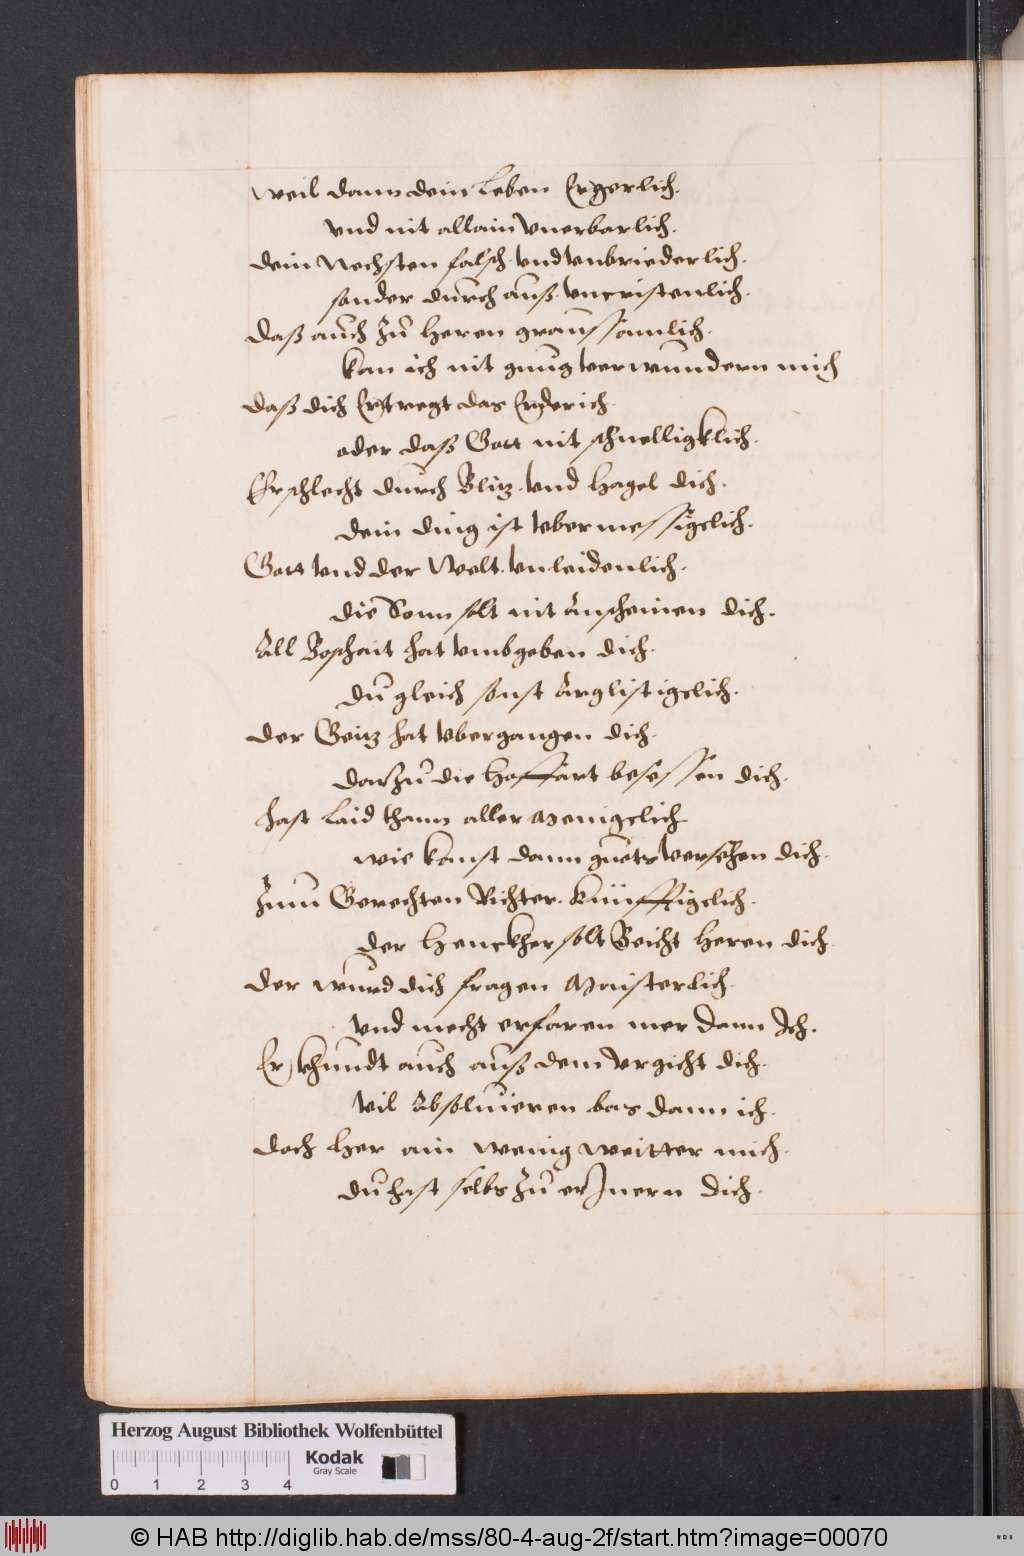 Weil dann dein Leben Ergerlich.
vnd nit allain vnerbarlich.
dein Nechsten falsch. vnd vnbriederlich.
sonder durch auß. vncristenlich.
Daß auch zu Heren graussamlich.
kan ich nit gnug verwundern mich
Daß dich Ertregt das Erderich.
oder daß Gott nit schnelligklich.
Erschlecht durch Blitz. vnd Hagel dich.
dein ding ist vbermessigclich.
Gott vnd der Welt. vnleidenlich.
die Sonn solt nit Anscheinen dich.
All Boshait hat vmbgeben dich.
du gleich sonst Arglistigclich.
Der Geitz hat vbergangen dich.
darzu die Hoffart besessen dich.
Hast Laid thann aller Menigclich
wie kanst dann guets versehen dich.
Zum Gerechten Richter. Künfftigclich.
der Henckher solt Beicht Heren dich
Der wurd dich fragen Maisterlich.
vnd mecht erfaren mer dann Ich.
Er khundt auch auß dem vrgicht dich.
vil Absoluieren bas dann ich.
Doch Her ain wenig weitter mich.
du hast selbs zu erInern dich.
Herzog August Bibliothek Wolfenbüttel
Kodak
Gray Scale
0 1 2 3 4
© HAB http://diglib.hab.de/mss/80-4-aug-2f/start.htm?image=00070